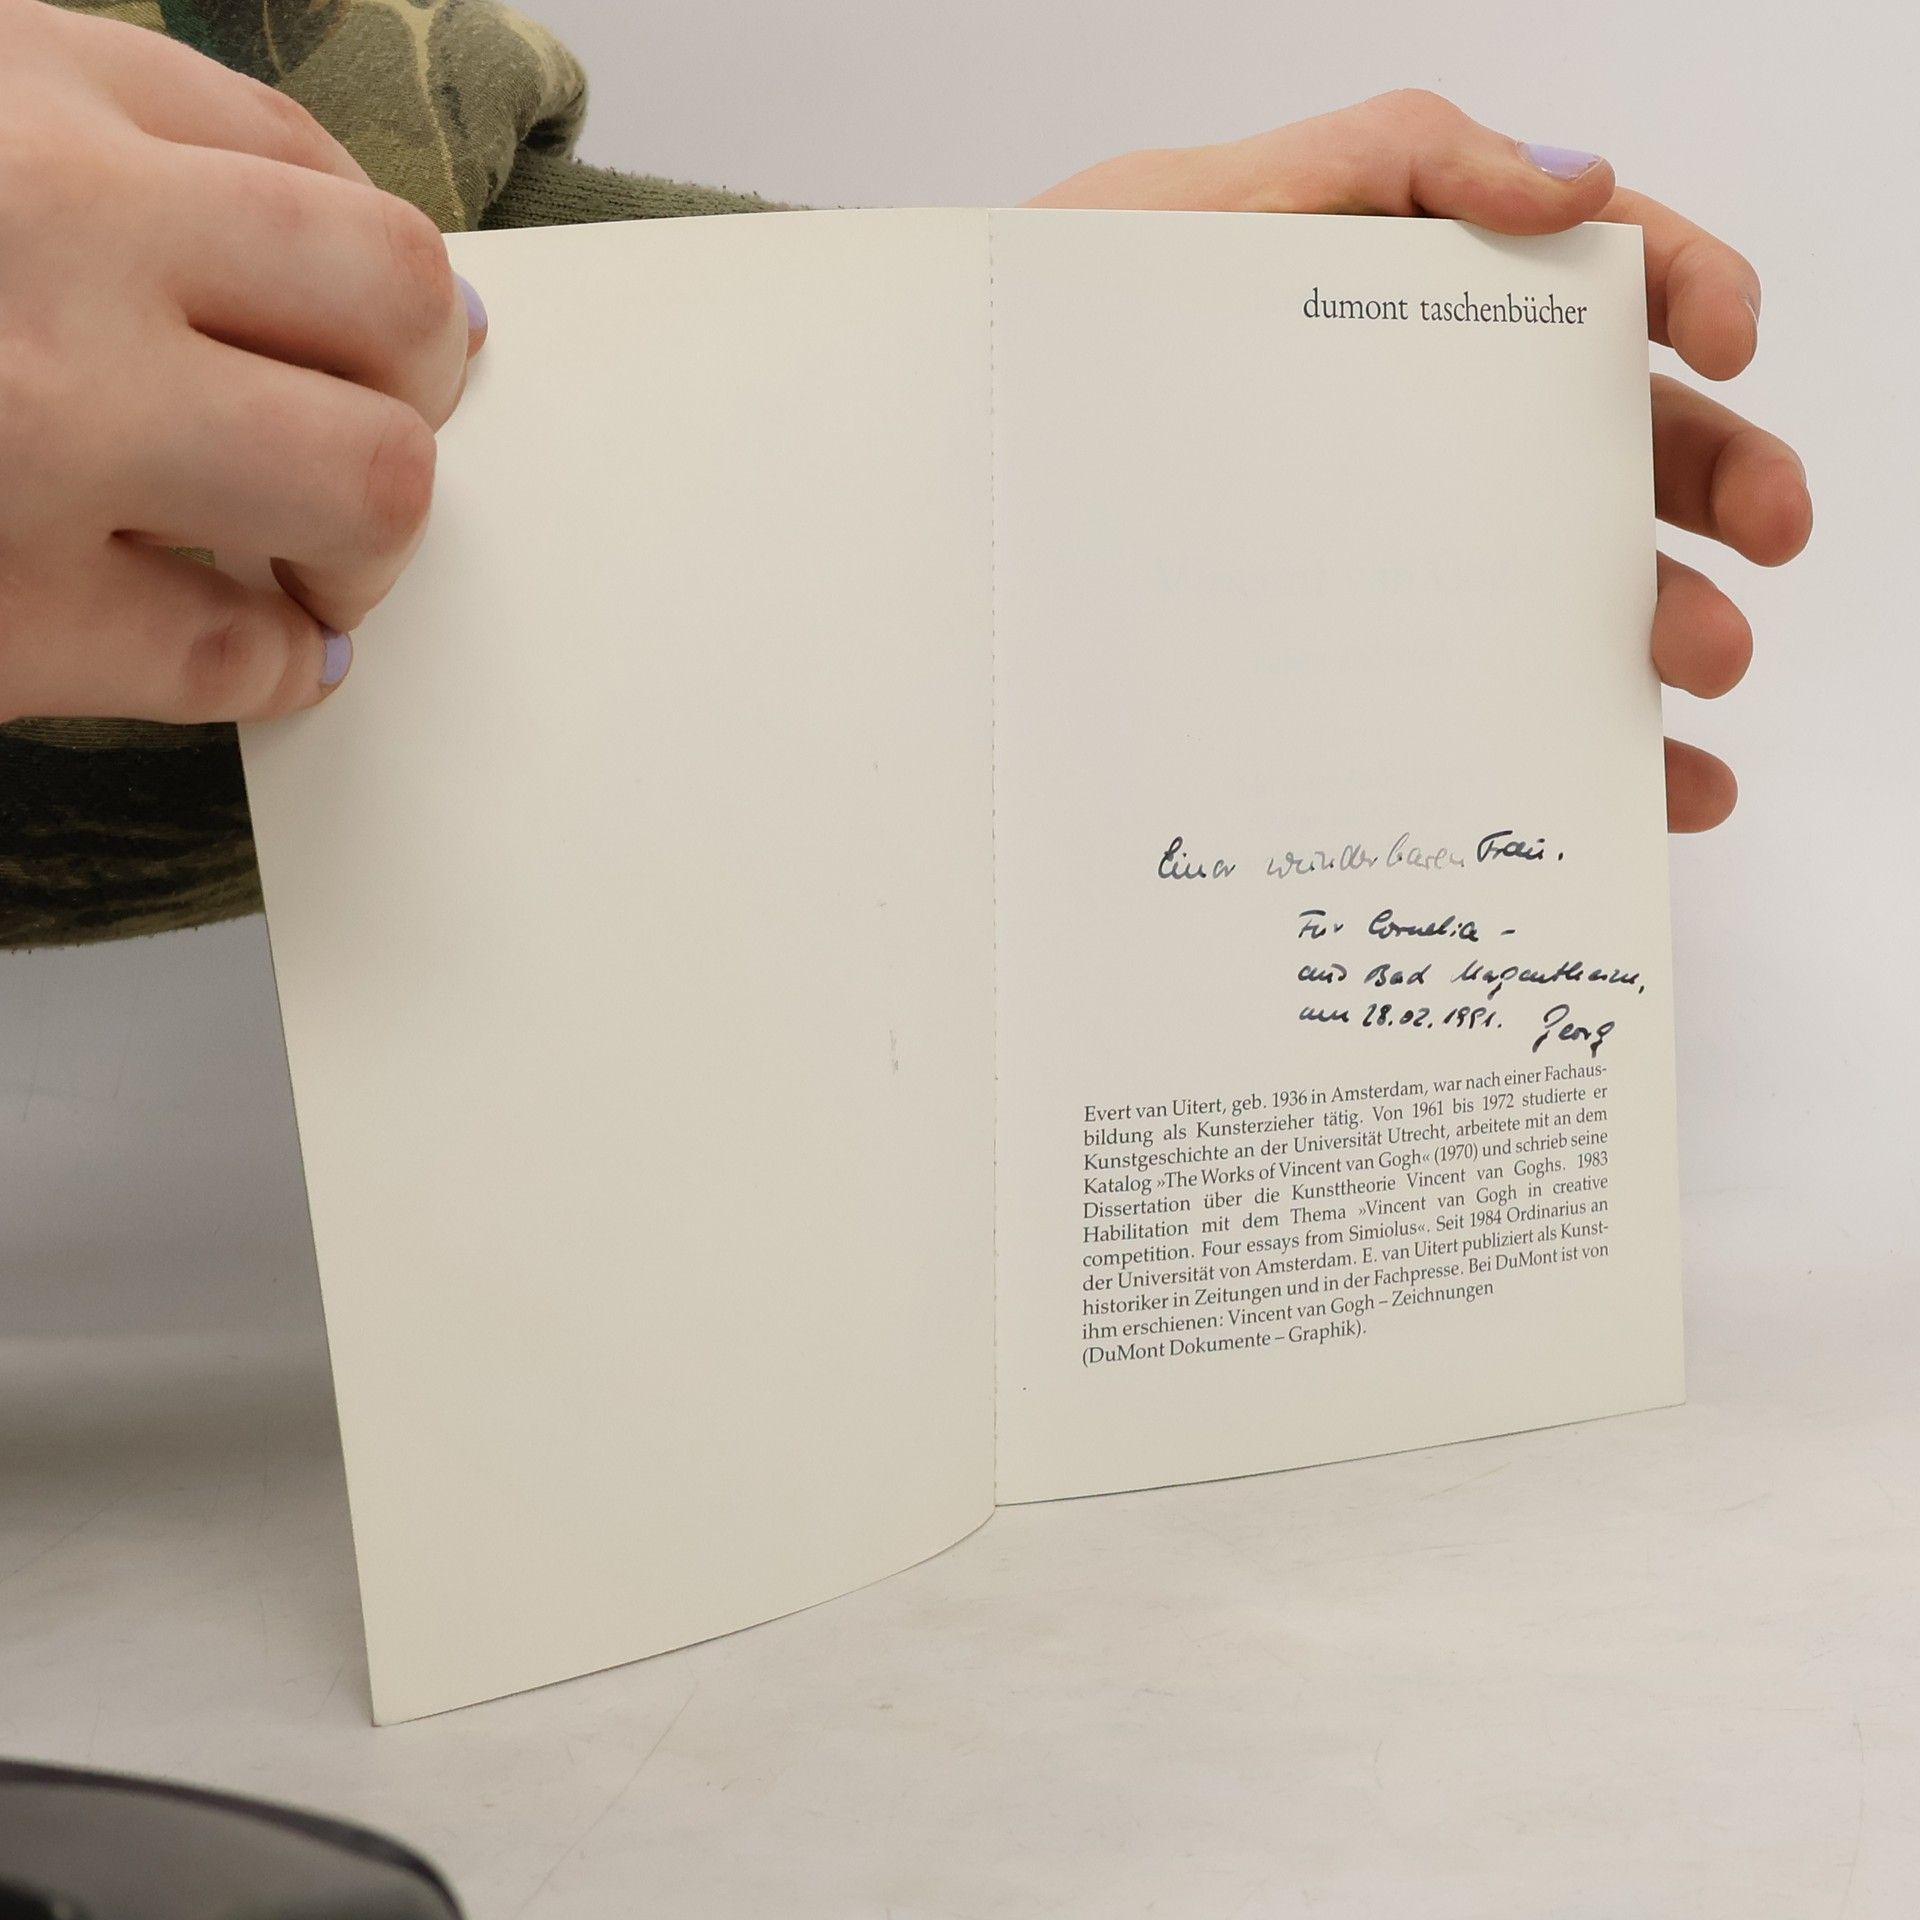 dumont taschenbücher
Einer wunderbaren Frau.
Für Cornelia -
aus Bad Mergentheim,
am 28.02.1991. Georg
Evert van Uitert, geb. 1936 in Amsterdam, war nach einer Fachaus-
bildung als Kunsterzieher tätig. Von 1961 bis 1972 studierte er
Kunstgeschichte an der Universität Utrecht, arbeitete mit an dem
Katalog »The Works of Vincent van Gogh« (1970) und schrieb seine
Dissertation über die Kunsttheorie Vincent van Goghs. 1983
Habilitation mit dem Thema »Vincent van Gogh in creative
competition. Four essays from Simiolus«. Seit 1984 Ordinarius an
der Universität von Amsterdam. E. van Uitert publiziert als Kunst-
historiker in Zeitungen und in der Fachpresse. Bei DuMont ist von
ihm erschienen: Vincent van Gogh – Zeichnungen
(DuMont Dokumente – Graphik).